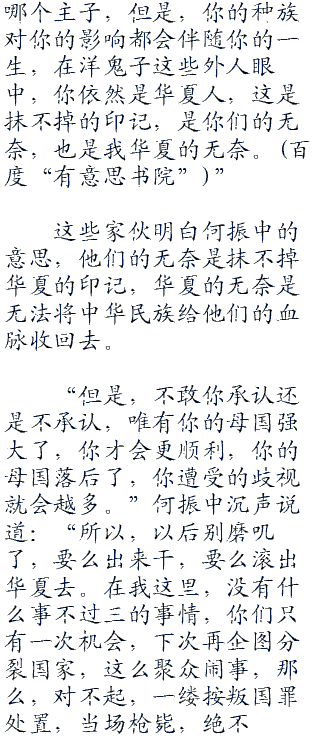 哪个主子，但是，你的种族
对你的影响都会伴随你的一
生，在洋鬼子这些外人眼
中，你依然是华夏人，这是
抹不掉的印记，是你们的无
奈，也是我华夏的无奈。(百
度“有意思书院”)”
这些家伙明白何振中的
意思，他们的无奈是抹不掉
华夏的印记，华夏的无奈是
无法将中华民族给他们的血
脉收回去。
“但是，不敢你承认还
是不承认，唯有你的母国强
大了，你才会更顺利，你的
母国落后了，你遭受的歧视
就会越多。”何振中沉声说
道：“所以，以后别磨叽
了，要么出来干，要么滚出
华夏去。在我这里，没有什
么事不过三的事情，你们只
有一次机会，下次再企图分
裂国家，这么聚众闹事，那
么，对不起，一缕按叛国罪
处置，当场枪毙，绝不